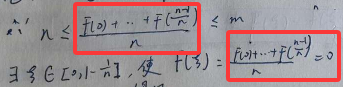 ∴ n ≤ \frac{F(0)+…+F(\frac{n-1}{n})}{n} ≤ m
∃ ξ ∈ [0,1-\frac{1}{n}], 使 f(ξ) = \frac{F(0)+…+F(\frac{n-1}{n})}{n} = 0